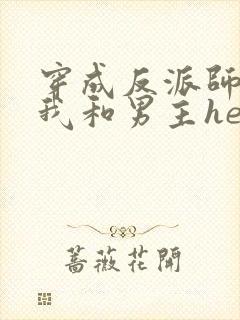 穿成反派師
我和男主he
薔薇花開